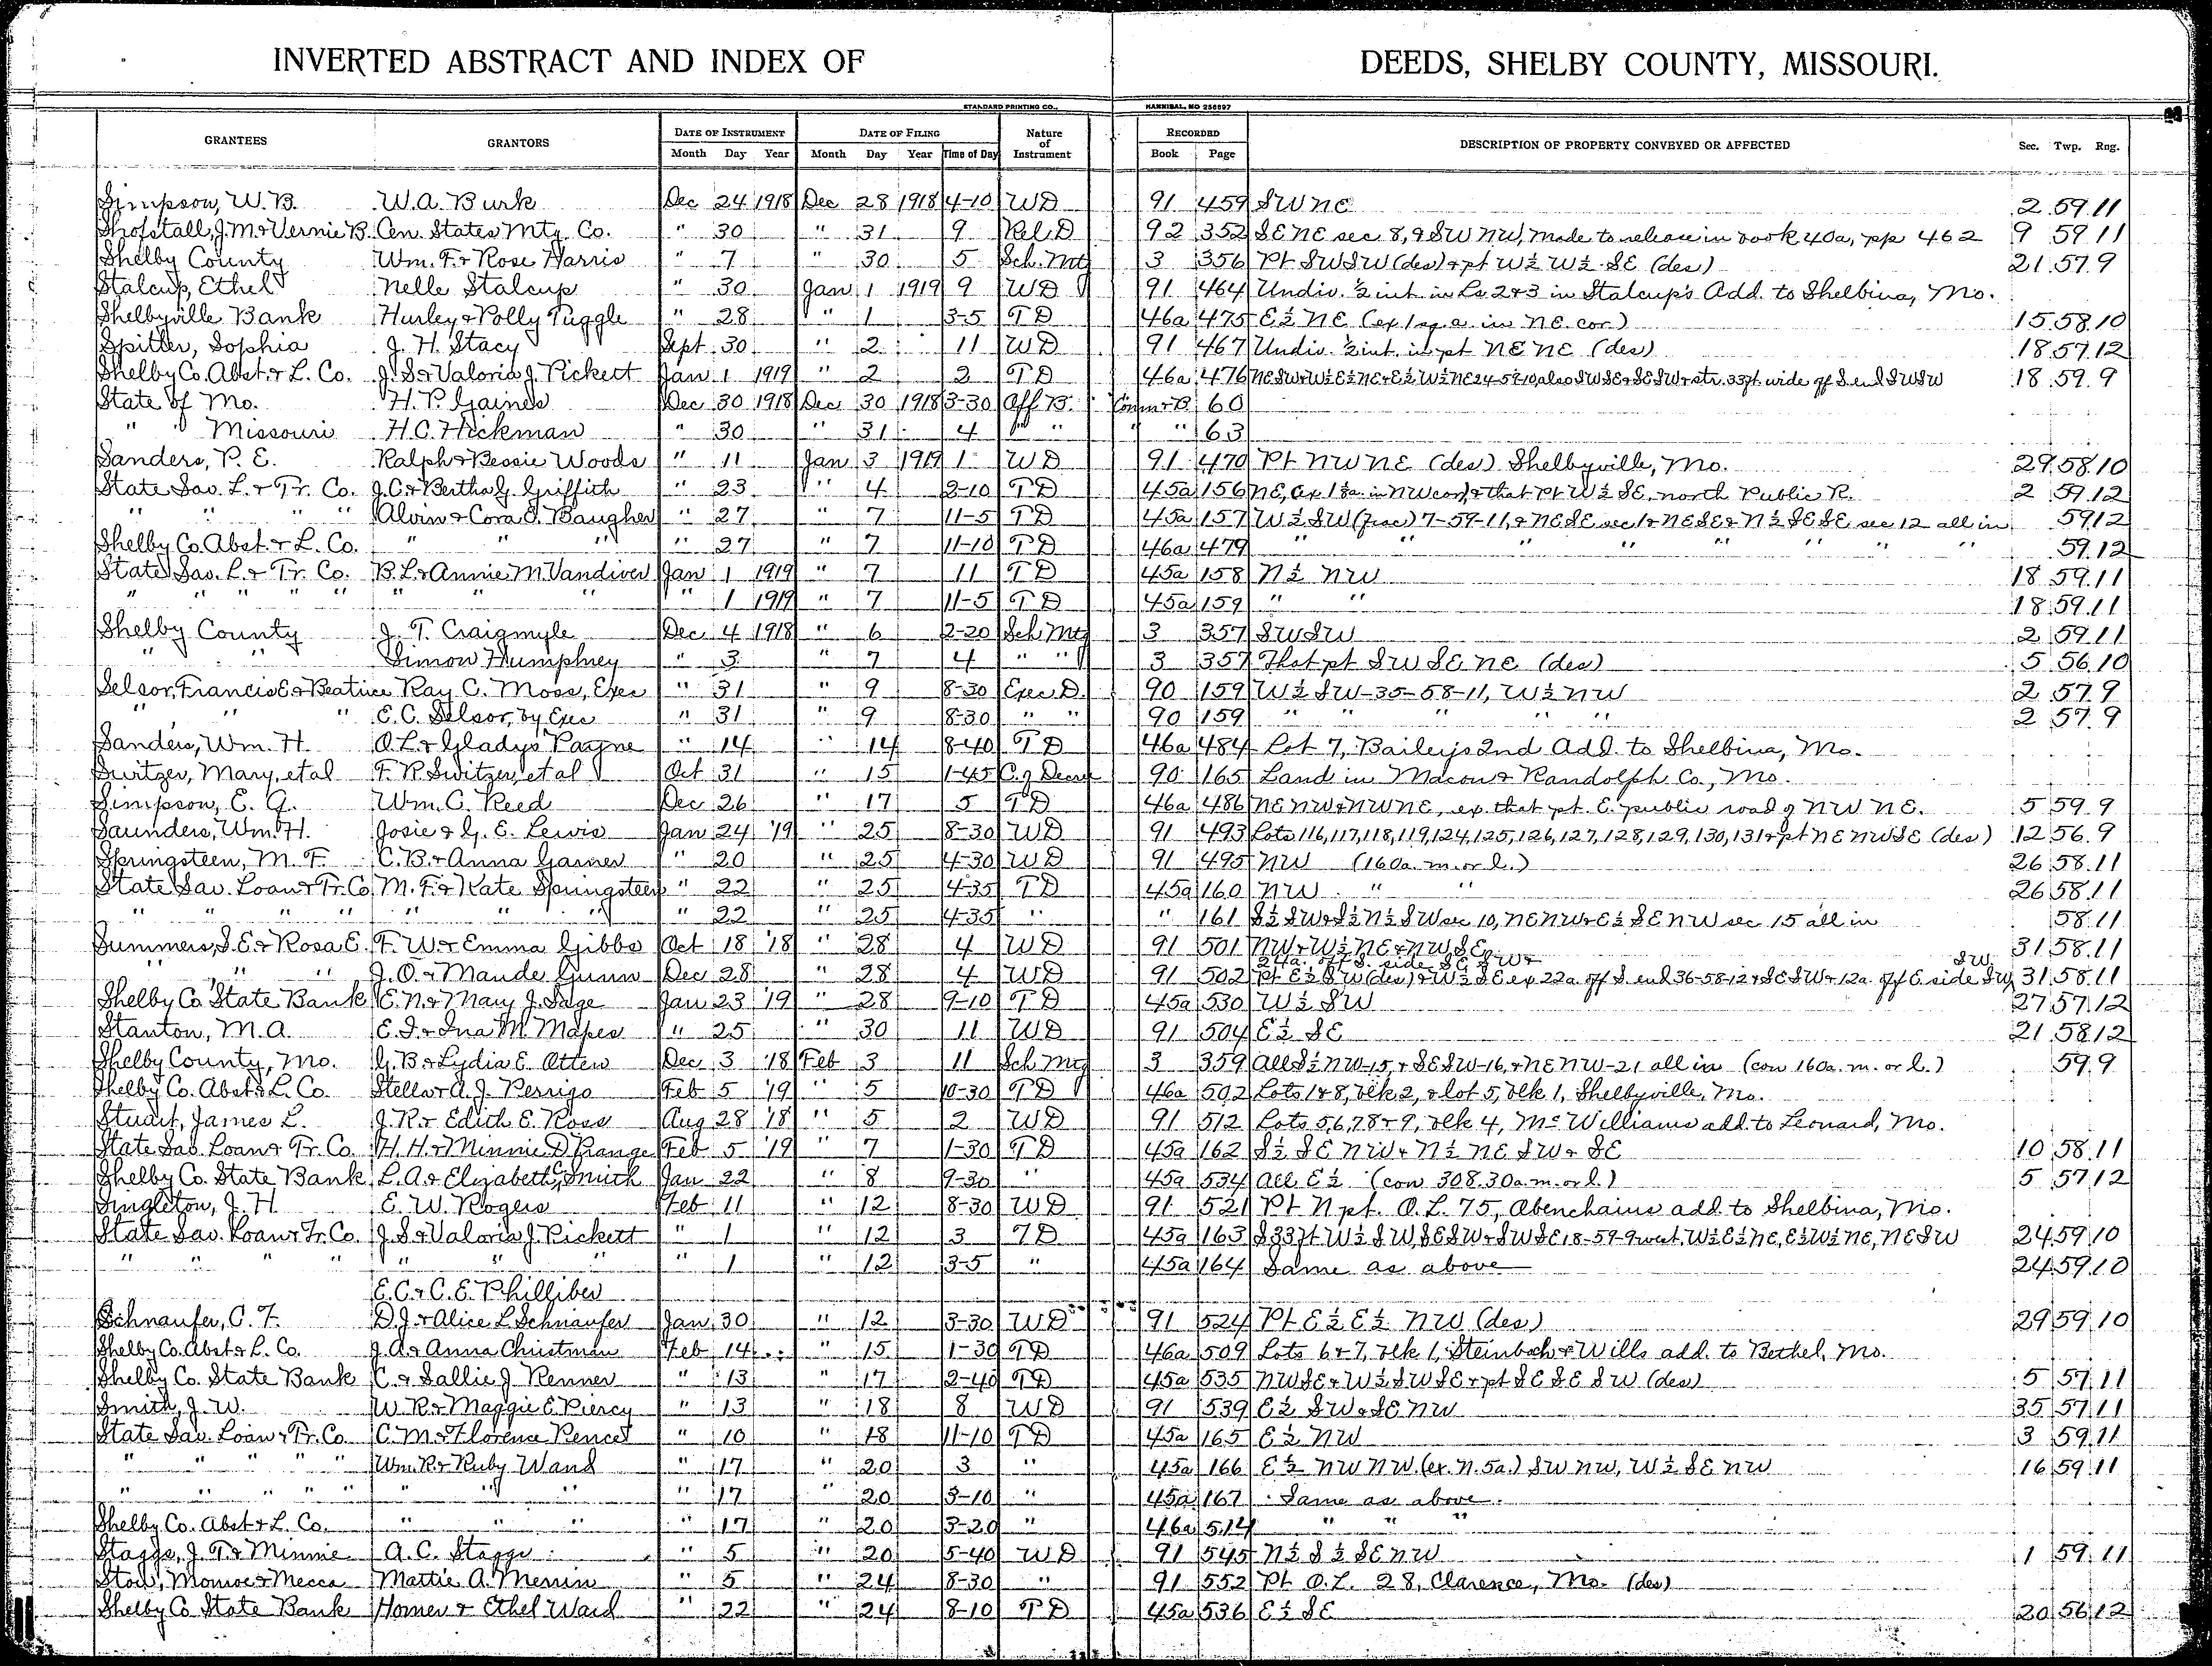 INVERTED ABSTRACT AND INDEX OF DEEDS, SHELBY COUNTY, MISSOURI.
STANDARD PRINTING CO., HANNIBAL, MO 256897
GRANTEES GRANTORS DATE OF INSTRUMENT DATE OF FILING Nature of Instrument RECORDED DESCRIPTION OF PROPERTY CONVEYED OR AFFECTED Sec. Twp. Rng.
Month Day Year Month Day Year Time of Day Book Page
Simpson, W. B. W. A. Burk Dec 24 1918 Dec 28 1918 4-10 WD 91 459 SW NE 2 59 11
Shofstall, J. M. & Vernie B. Cen. States Mtg. Co. " 30 " 31 9 Rel. D 92 352 SE NE sec 8, & SW NW, made to release in book 40a, pp 462 9 59 11
Shelby County Wm. F. & Rose Harris " 7 " 30 5 Sch. Mtg 3 356 Pt SW SW (des) & pt W½ W½ SE (des) 21 57 9
Stalcup, Ethel Nelle Stalcup " 30 Jan 1 1919 9 WD 91 464 Undiv. ½ int in Ls 2 & 3 in Stalcup's Add. to Shelbina, Mo.
Shelbyville Bank Hurley & Polly Tuggle " 28 " 1 3-5 TD 46a 475 E½ NE (ex 1 sq. a in NE cor.) 15 58 10
Spitler, Sophia J. H. Stacy Sept 30 " 2 11 WD 91 467 Undiv. ½ int. in pt NE NE (des) 18 57 12
Shelby Co. Abst. & L. Co. J. S. & Valoria J. Pickett Jan 1 1919 " 2 2 TD 46a 476 NE SW & W½ E½ NE & E½ W½ NE 24-59-10, also SW SE & SE SW & str. 33ft wide off S. end SW SW 18 59 9
State of Mo. H. P. Gaines Dec 30 1918 Dec 30 1918 3-30 Off B. Comm B 60
" " Missouri H. C. Hickman " 30 " 31 4 " " " " 63
Sanders, P. E. Ralph & Bessie Woods " 11 Jan 3 1919 1 WD 91 470 Pt NW NE (des) Shelbyville, Mo. 29 58 10
State Sav. L. & Tr. Co. J. C. & Bertha G. Griffith " 23 " 4 2-10 TD 45a 156 NE, ex 1⅛a. in NW cor, & that pt W½ SE, north Public R. 2 59 12
" " " " Alvin & Cora J. Baugher " 27 " 7 11-5 TD 45a 157 W½ SW (frac) 7-59-11, & NE SE sec 1 & NE SE & N½ SE SE sec 12 all in 59 12
Shelby Co. Abst. & L. Co. " " " " 27 " 7 11-10 TD 46a 479 " " " " " " " 59 12
State Sav. L. & Tr. Co. B. L. & Annie M. Vandiver Jan 1 1919 " 7 11 TD 45a 158 N½ NW 18 59 11
" " " " " " " " " 1 1919 " 7 11-5 TD 45a 159 " " 18 59 11
Shelby County J. T. Craigmyle Dec 4 1918 " 6 2-20 Sch. Mtg 3 357 SW SW 2 59 11
" " Simon Humphrey " 3 " 7 4 " " 3 357 That pt SW SE NE (des) 5 56 10
Selsor, Francis E. & Beatrice Ray C. Moss, Exec " 31 " 9 8-30 Exec. D. 90 159 W½ SW-35-58-11, W½ NW 2 57 9
" " " E. C. Selsor, by Exec " 31 " 9 8-30 " " 90 159 " " " " " 2 57 9
Sanders, Wm. H. O. L. & Gladys Payne " 14 " 14 8-40 TD 46a 484 Lot 7, Baileys 2nd Add. to Shelbina, Mo.
Switzer, Mary, et al F. R. Switzer, et al Oct 31 " 15 1-45 C. of Decree 90 165 Land in Macon & Randolph Co., Mo.
Simpson, E. G. Wm. C. Reed Dec 26 " 17 5 TD 46a 486 NE NW & NW NE, ex. that pt. E. public road of NW NE. 5 59 9
Saunders, Wm. H. Josie & G. E. Lewis Jan 24 '19 " 25 8-30 WD 91 493 Lots 116, 117, 118, 119, 124, 125, 126, 127, 128, 129, 130, 131 & pt NE NW SE (des) 12 56 9
Springsteen, M. F. C. B. & Anna Garner " 20 " 25 4-30 WD 91 495 NW (160a. m. or l.) 26 58 11
State Sav. Loan & Tr. Co. M. F. & Kate Springsteen " 22 " 25 4-35 TD 45a 160 NW " " 26 58 11
" " " " " " " " 22 " 25 4-35 " " 161 S½ SW & S½ N½ SW sec 10, NE NW & E½ SE NW sec 15 all in 58 11
Summers, S. E. & Rosa E. F. W. & Emma Gibbs Oct 18 '18 " 28 4 WD 91 501 NW & W½ NE & NW SE 31 58 11
24a. off S. side SE SW & SW
" " " J. O. & Maude Gunn Dec 28 " 28 4 WD 91 502 Pt E½ SW (des) & W½ SE ex 22a. off S. end 36-58-12 & SE SW & 12a. off E. side SW 31 58 11
Shelby Co. State Bank E. N. & Mary J. Sage Jan 23 '19 " 28 9-10 TD 45a 530 W½ SW 27 57 12
Stanton, M. A. E. I. & Ina M. Mapes " 25 " 30 11 WD 91 504 E½ SE 21 58 12
Shelby County, Mo. G. B. & Lydia E. Otten Dec 3 '18 Feb 3 11 Sch Mtg 3 359 All S½ NW-15, & SE SW-16, & NE NW-21 all in (con 160a. m. or l.) 59 9
Shelby Co. Abst. & L. Co. Stella & A. J. Perrigo Feb 5 '19 " 5 10-30 TD 46a 502 Lots 1 & 8, blk 2, & lot 5, blk 1, Shelbyville, Mo.
Stuart, James L. J. R. & Edith E. Ross Aug 28 '18 " 5 2 WD 91 512 Lots 5, 6, 7, 8 & 9, blk 4, McWilliams add. to Leonard, Mo.
State Sav. Loan & Tr. Co H. H. & Minnie D. Prange Feb 5 '19 " 7 1-30 TD 45a 162 S½ SE NW & N½ NE SW & SE 10 58 11
Shelby Co. State Bank L. A. & Elizabeth C. Smith Jan 22 " 8 9-30 " 45a 534 All E½ (con 308.30a. m. or l.) 5 57 12
Singleton, J. H. E. W. Rogers Feb 11 " 12 8-30 WD 91 521 Pt N pt. O. L. 75, Obenchains add to Shelbina, Mo.
State Sav. Loan & Tr. Co. J. S. & Valoria J. Pickett " 1 " 12 3 TD 45a 163 S 33ft W½ SW, SE SW & SW SE 18-59-9 west, W½ E½ NE, E½ W½ NE, NE SW 24 59 10
" " " " " " " " 1 " 12 3-5 " 45a 164 Same as above 24 59 10
E. C. & C. E. Philliber
Schnaufer, C. F. D. J. & Alice L. Schnaufer Jan 30 " 12 3-30 WD 91 524 Pt E½ E½ NW (des) 29 59 10
Shelby Co. Abst. & L. Co. J. A. & Anna Christman Feb 14 " 15 1-30 TD 46a 509 Lots 6 & 7, blk 1, Steinbach & Wills add. to Bethel, Mo.
Shelby Co. State Bank C. & Sallie J. Renner " 13 " 17 2-40 TD 45a 535 NW SE & W½ SW SE & pt SE SE SW (des) 5 57 11
Smith, J. W. W. R. & Maggie E. Piercy " 13 " 18 8 WD 91 539 E½ SW & SE NW 35 57 11
State Sav. Loan & Tr. Co C. M. & Florence Pence " 10 " 18 11-10 TD 45a 165 E½ NW 3 59 11
" " " " " Wm. R. & Ruby Wand " 17 " 20 3 " 45a 166 E½ NW NW (ex. N. 5a.) SW NW, W½ SE NW 16 59 11
" " " " " " " " " 17 " 20 3-10 " 45a 167 Same as above
Shelby Co. Abst. & L. Co. " " " " 17 " 20 3-20 " 46a 514 " " "
Staggs, J. T. & Minnie A. C. Staggs " 5 " 20 5-40 WD 91 545 N½ S½ SE NW 1 59 11
Stow, Monroe & Mecca Mattie A. Merrin " 5 " 24 8-30 " 91 552 Pt O. L. 28, Clarence, Mo. (des)
Shelby Co State Bank Homer & Ethel Ward " 22 " 24 8-10 TD 45a 536 E½ SE 20 56 12